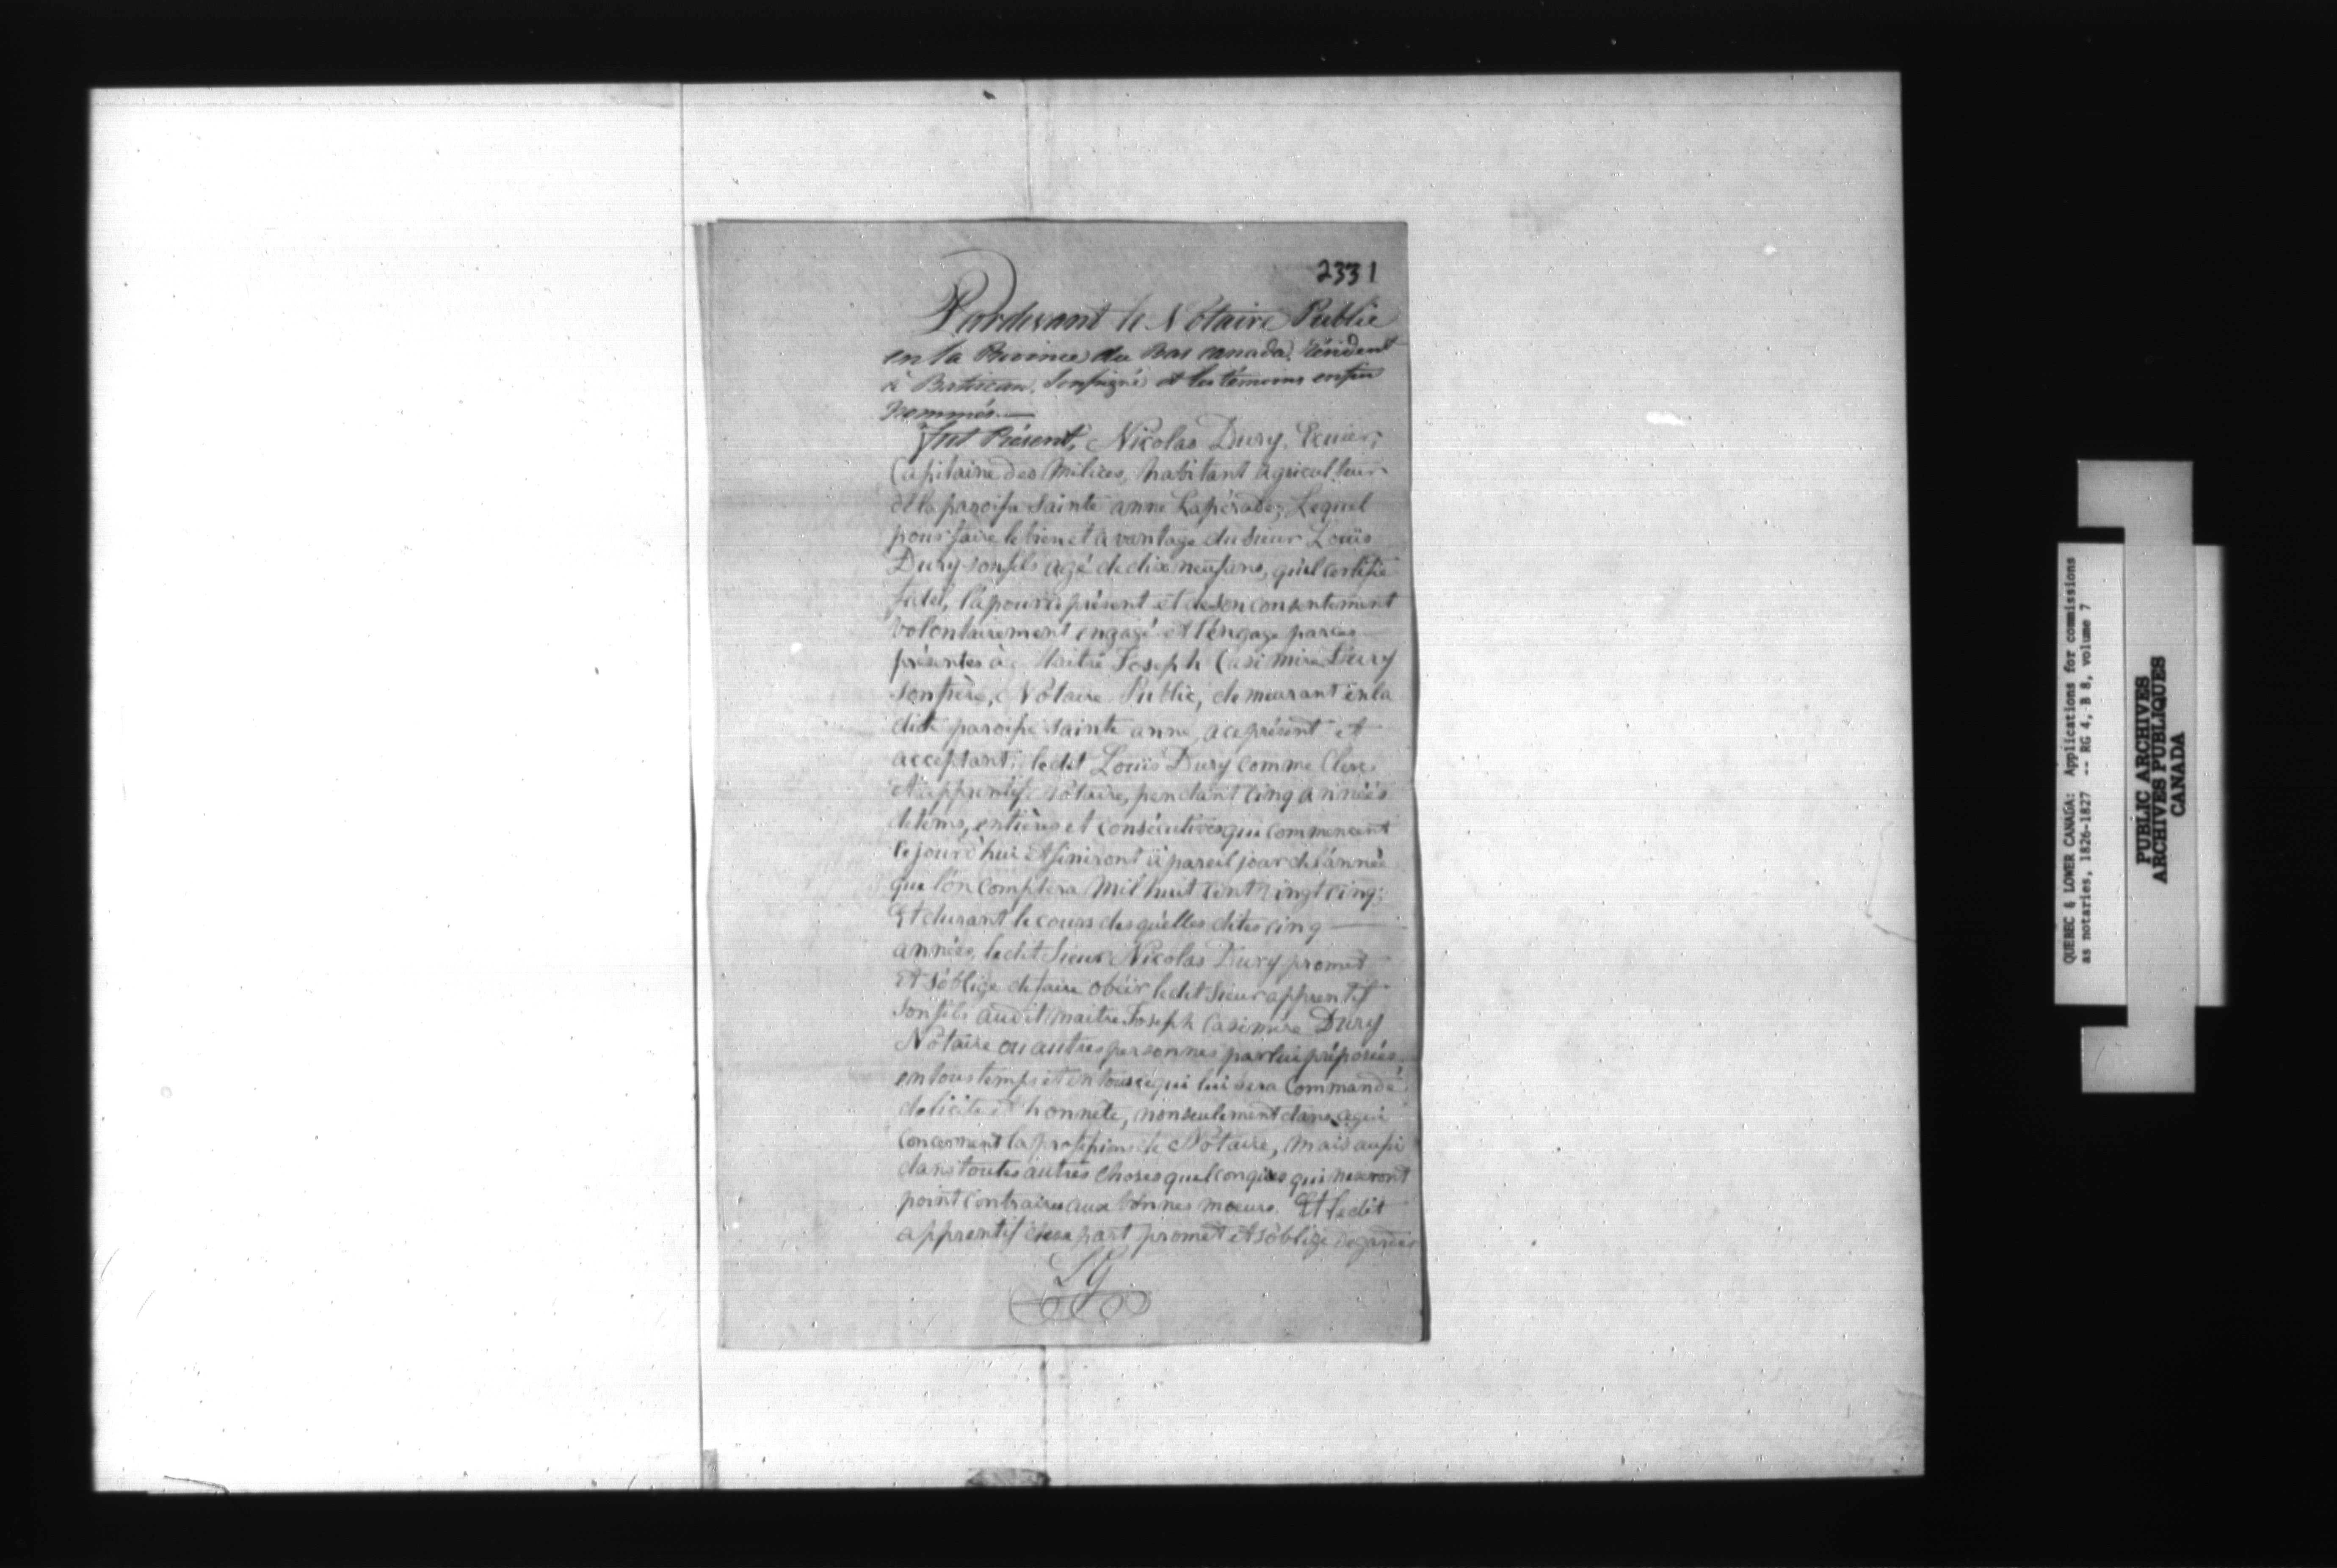 2331
Pardevant le Nôtaire Public
en la Province du Bas Canada, résident
à Batiscan, Soussigné et les témoins en fin
nommés.—
Fut Présent, Nicolas Dury, Ecuier,
Capitaine des Milices, habitant agriculteur
de la paroisse Sainte anne Lapérade; Lequel
pour faire le bien et avantage du Sieur Louis
Dury son fils agé de dix neuf ans, qu'il certifie
fidel, l'a pour ce présent et de son consentement
volontairement engagé et l'engage par ces
présentes à Maitre Joseph Casimire Dury
son frère, Nôtaire Public, demeurant en la
dite paroisse Sainte anne, a ce présent et
acceptant, le dit Louis Dury comme Clerc
et apprentif Nôtaire, pendant cinq années
de tems, entières et consécutives qui commencent
ce jourd'hui et finiront à pareil jour de l'année
que l'on comptera Mil huit cent vingt cinq;
Et durant le cours des quelles dites cinq
années, le dit Sieur Nicolas Dury promet
et s'oblige de faire obéir le dit Sieur apprentif
son fils audit maitre Joseph Casimire Dury
Nôtaire ou autres personnes par lui préposées
en tous temps et en tout ce qui lui sera Commandé
de licite et honnête, non seulement dans ce qui
concernent la profession de Nôtaire, mais aussi
dans toutes autres choses quelconques qui ne seront
point contraires aux bonnes mœurs. Et le dit
apprentif de sa part promet et s'oblige de garder
LG
QUEBEC & LOWER CANAGA: Applications for comissions
as notaries, 1826-1827 -- RG 4, B 8, volume 7
PUBLIC ARCHIVES
ARCHIVES PUBLIQUES
CANADA